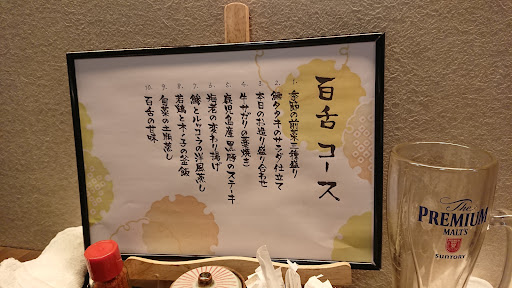 百舌コース
1. 季節の前菜三種盛り
2. 鰹タタキのサラダ仕立て
3. 本日のお造り盛り合わせ
4. 牛サガリの藁焼き
5. 鹿児島産黒豚のステーキ
6. 海老の変わり揚げ
7. 鰆とルッコラの洋風蒸し
8. 若鶏と木の子の釜飯
9. 旬菜の土瓶蒸し
10. 百舌の甘味
The
PREMIUM
MALT'S
SUNTORY